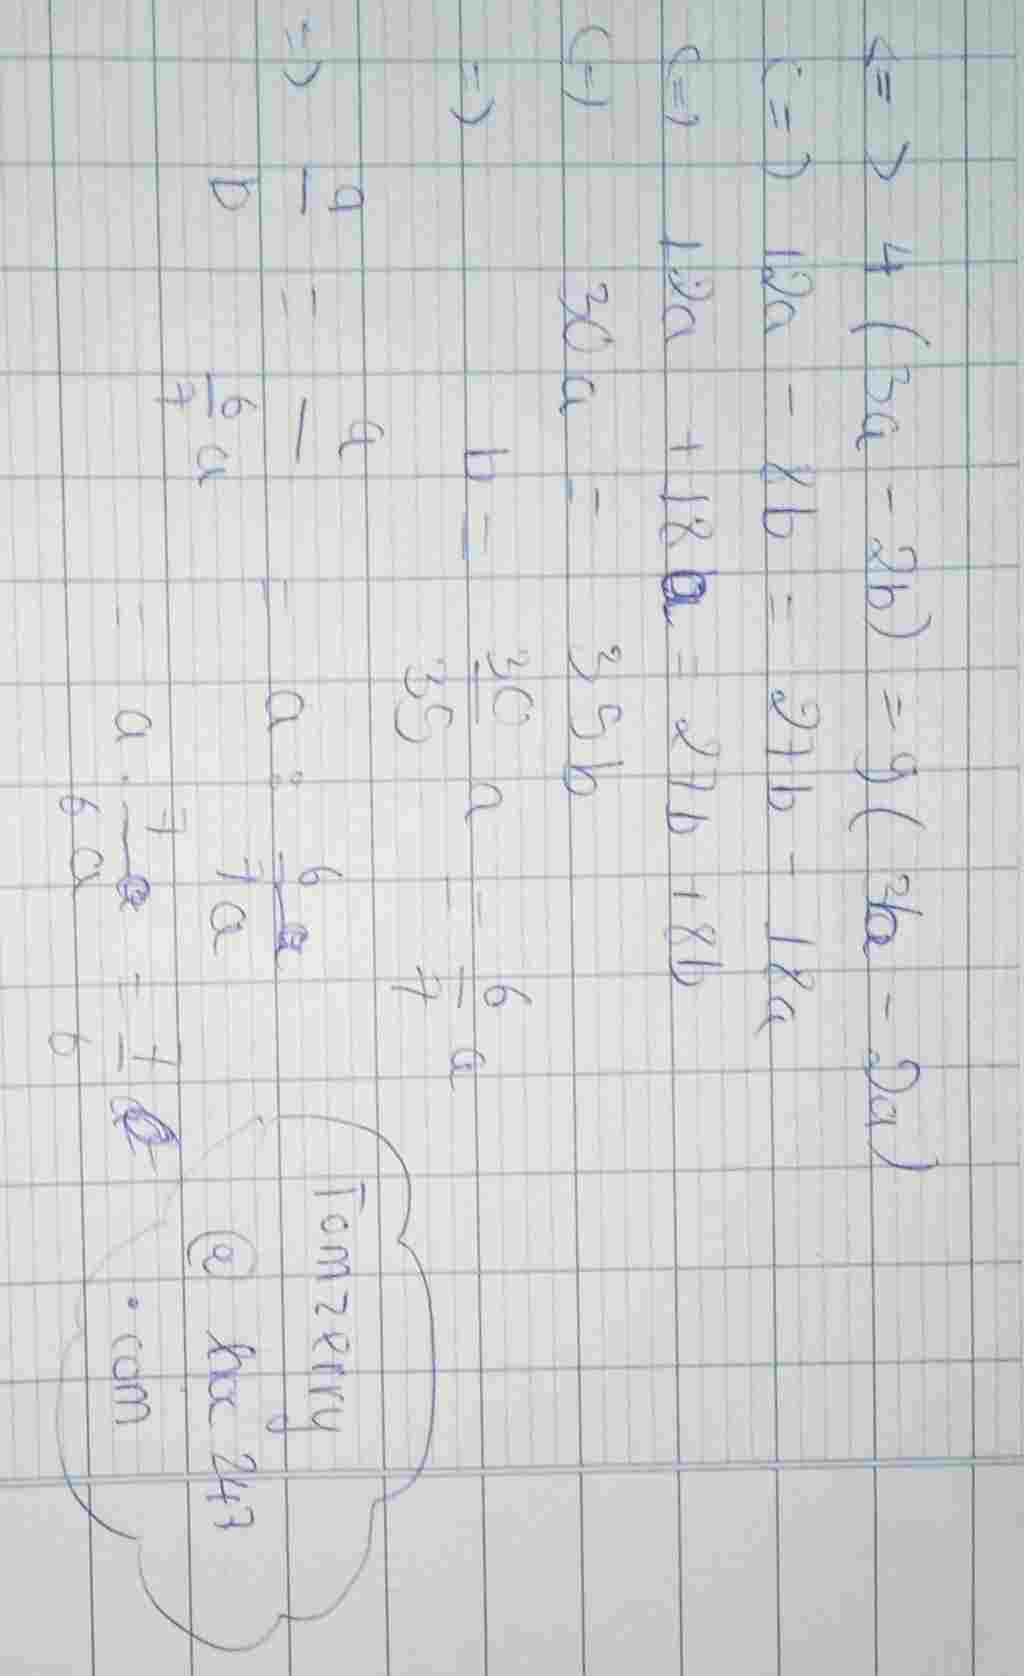 <=> 4 (3a - 2b) = 9 (3b - 2a)
(=) 12a - 8b = 27b - 18a
(=) 12a + 18a = 27b + 8b
(=) 30a = 35b
=) b = 30/35 a = 6/7 a
=) a/b = a/(6/7 a) = a : 6/7 a
= a . 7/6a = 7/6
Tomzerry
@ hoc 247
.com